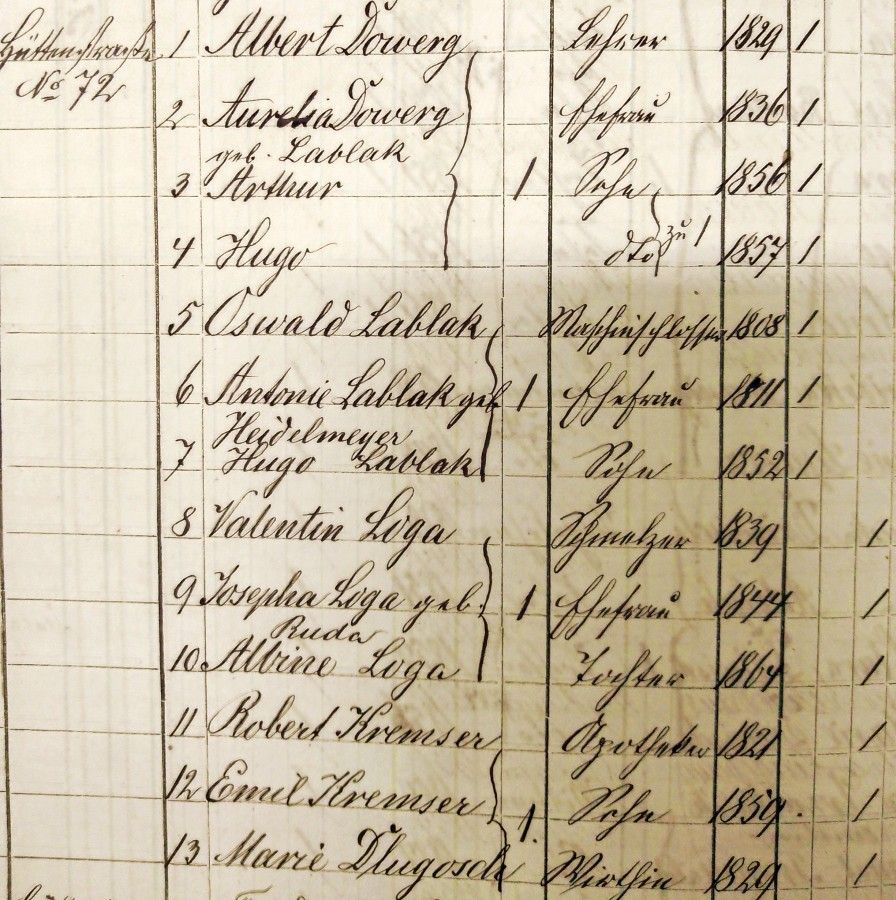 Hüttenstraße 1 Albert Dowerg Lehrer 1829 1
No 72
2 Aurelia Dowerg Ehefrau 1836 1
geb. Lablak
3 Arthur 1 Sohn 1856 1
4 Hugo dto zu 1 1857 1
5 Oswald Lablak Maschinschlosser 1808 1
6 Antonie Lablak geb 1 Ehefrau 1811 1
Heidelmeyer
7 Hugo Lablak Sohn 1852 1
8 Valentin Loga Schmelzer 1839 1
9 Josepha Loga geb. 1 Ehefrau 1844 1
Ruda
10 Albine Loga Tochter 1864 1
11 Robert Kremser Apotheker 1821 1
12 Emil Kremser 1. Sohn 1859. 1
13 Marie Dlugosch Wirthin 1829 1